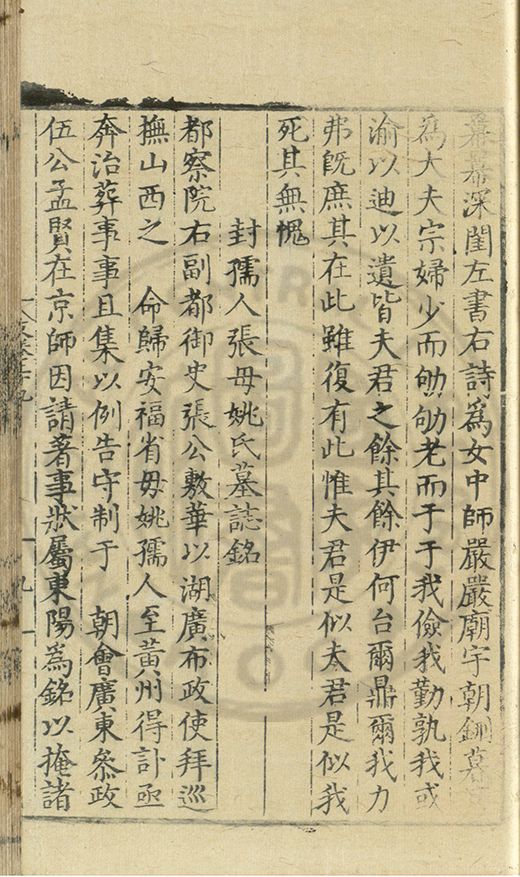 幕幕深閨左書右詩爲女中師嚴嚴廟宇朝鉶暮
爲大夫宗婦少而劬劬老而于于我儉我勤孰我或
渝以迪以遺皆夫君之餘其餘伊何台爾鼎爾我力
弗既庶其在此雖復有此惟夫君是似太君是似我
死其無愧
封孺人張母姚氏墓誌銘
都察院右副都御史張公敷華以湖廣布政使拜巡
撫山西之 命歸安福省母姚孺人至黃州得訃亟
奔治葬事事且集以例告守制于 朝會廣東叅政
伍公孟賢在京師因請著事狀屬東陽爲銘以掩諸